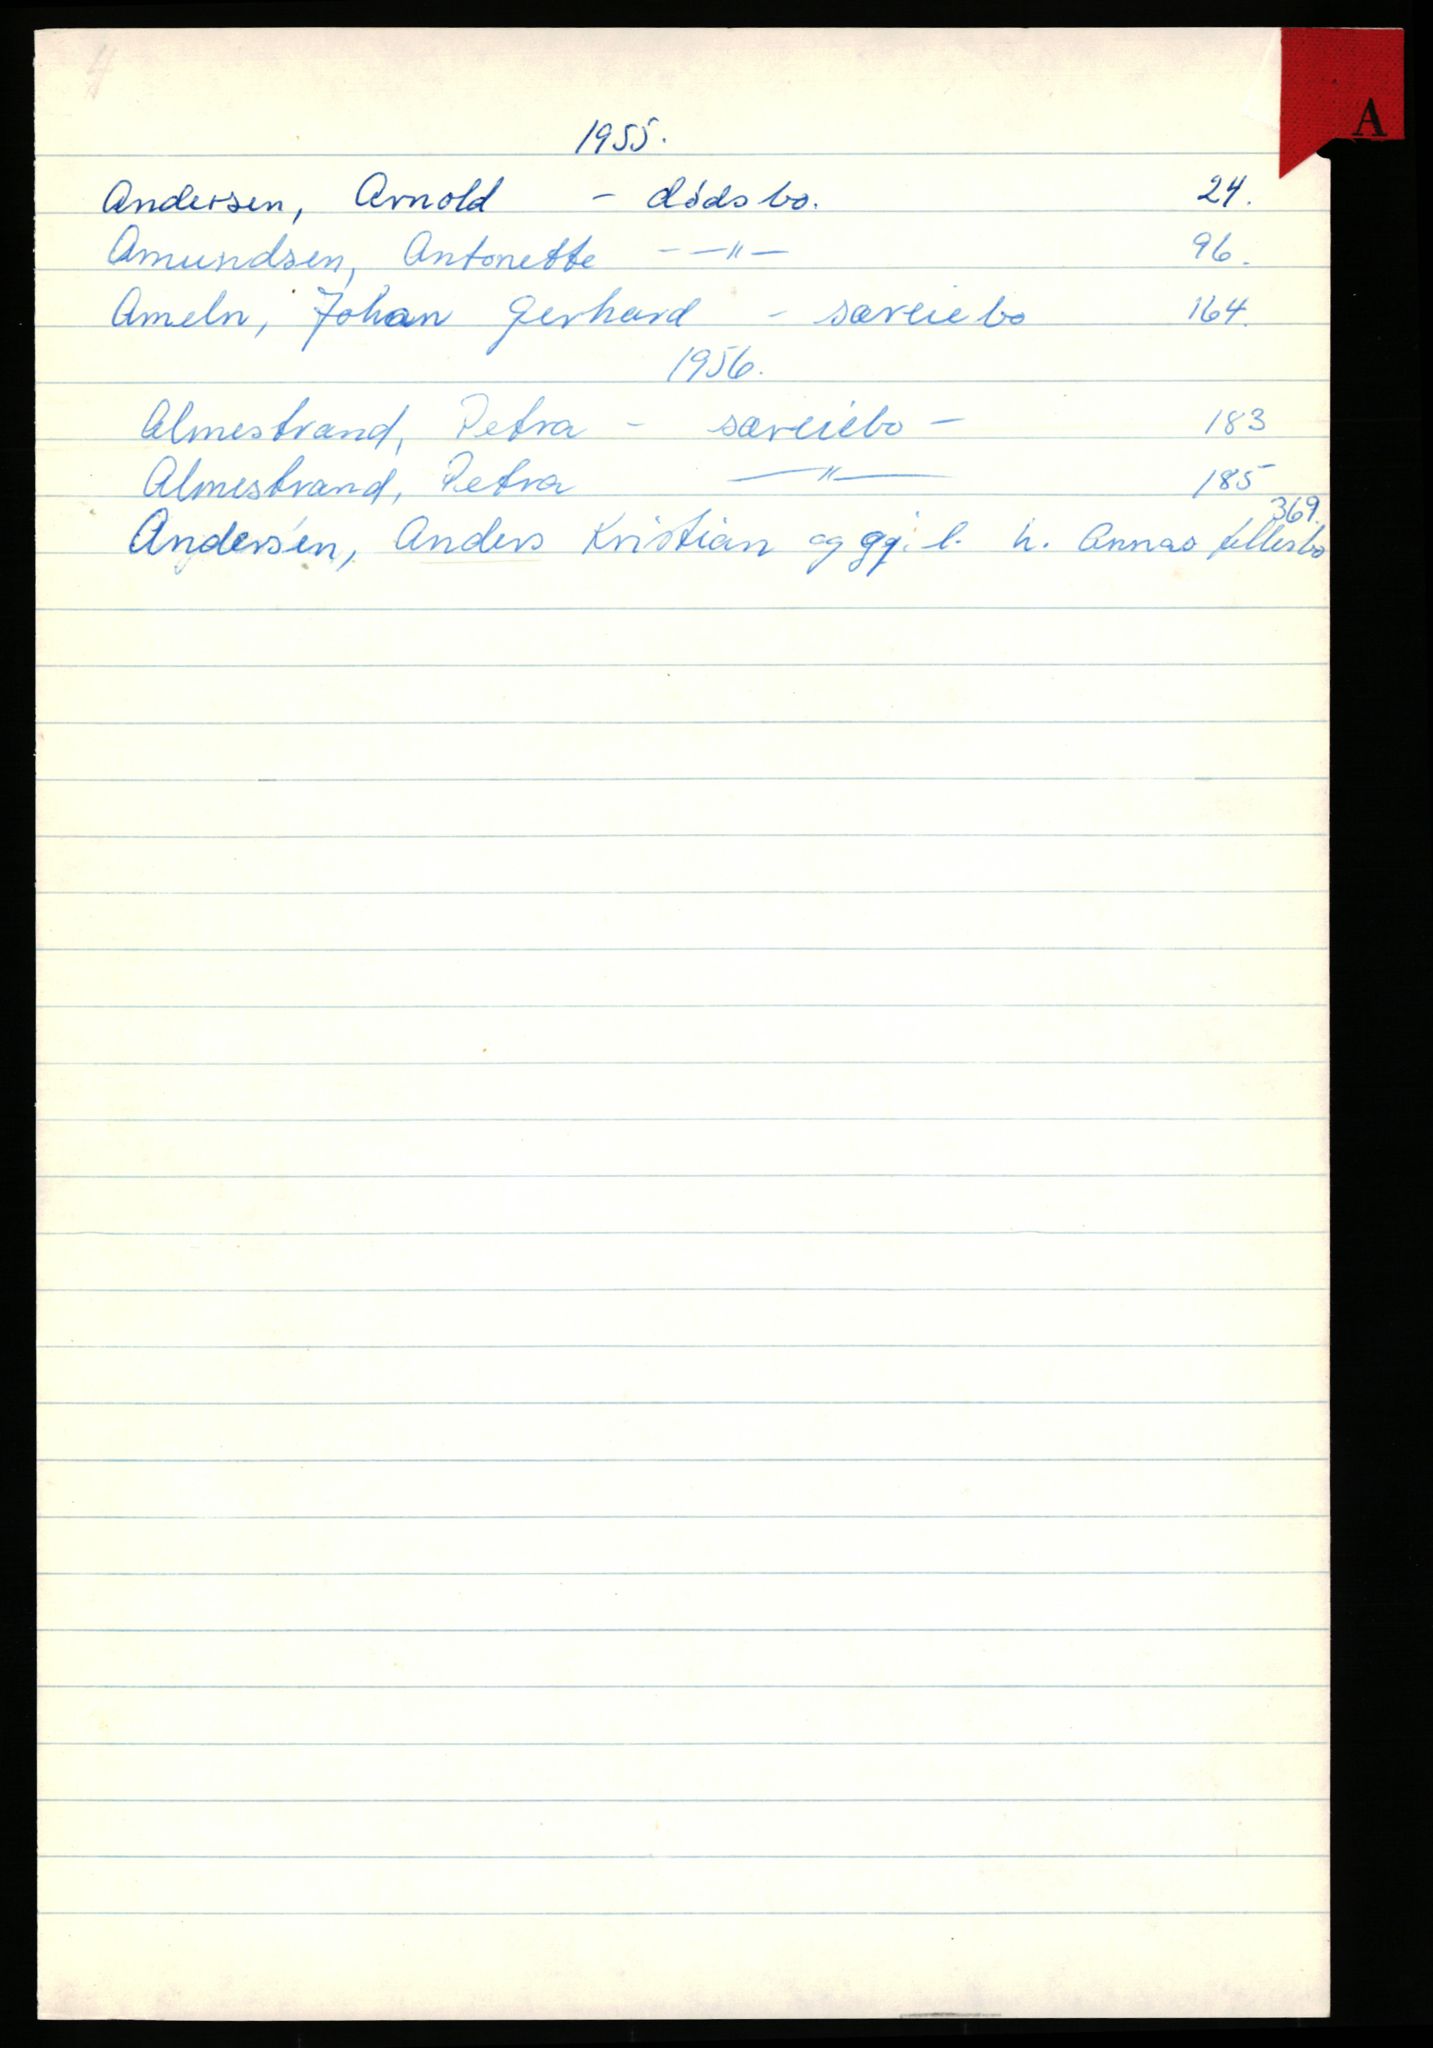 A
1955.
Andersen, Arnold - dødsbo. 24.
Amundsen, Antonette - — " — 96.
Ameln, Johan Gerhard - særeiebo 164.
1956.
Almestrand, Petra - særeiebo - 183
Almestrand, Petra — " — 185
369.
Andersen, Anders Kristian og gj. l. h. Annas fellesbo